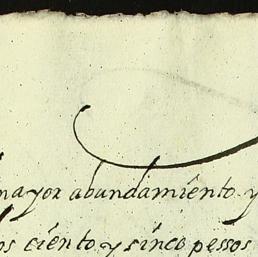 mayor abundamiento y
os ciento y sinco pessos